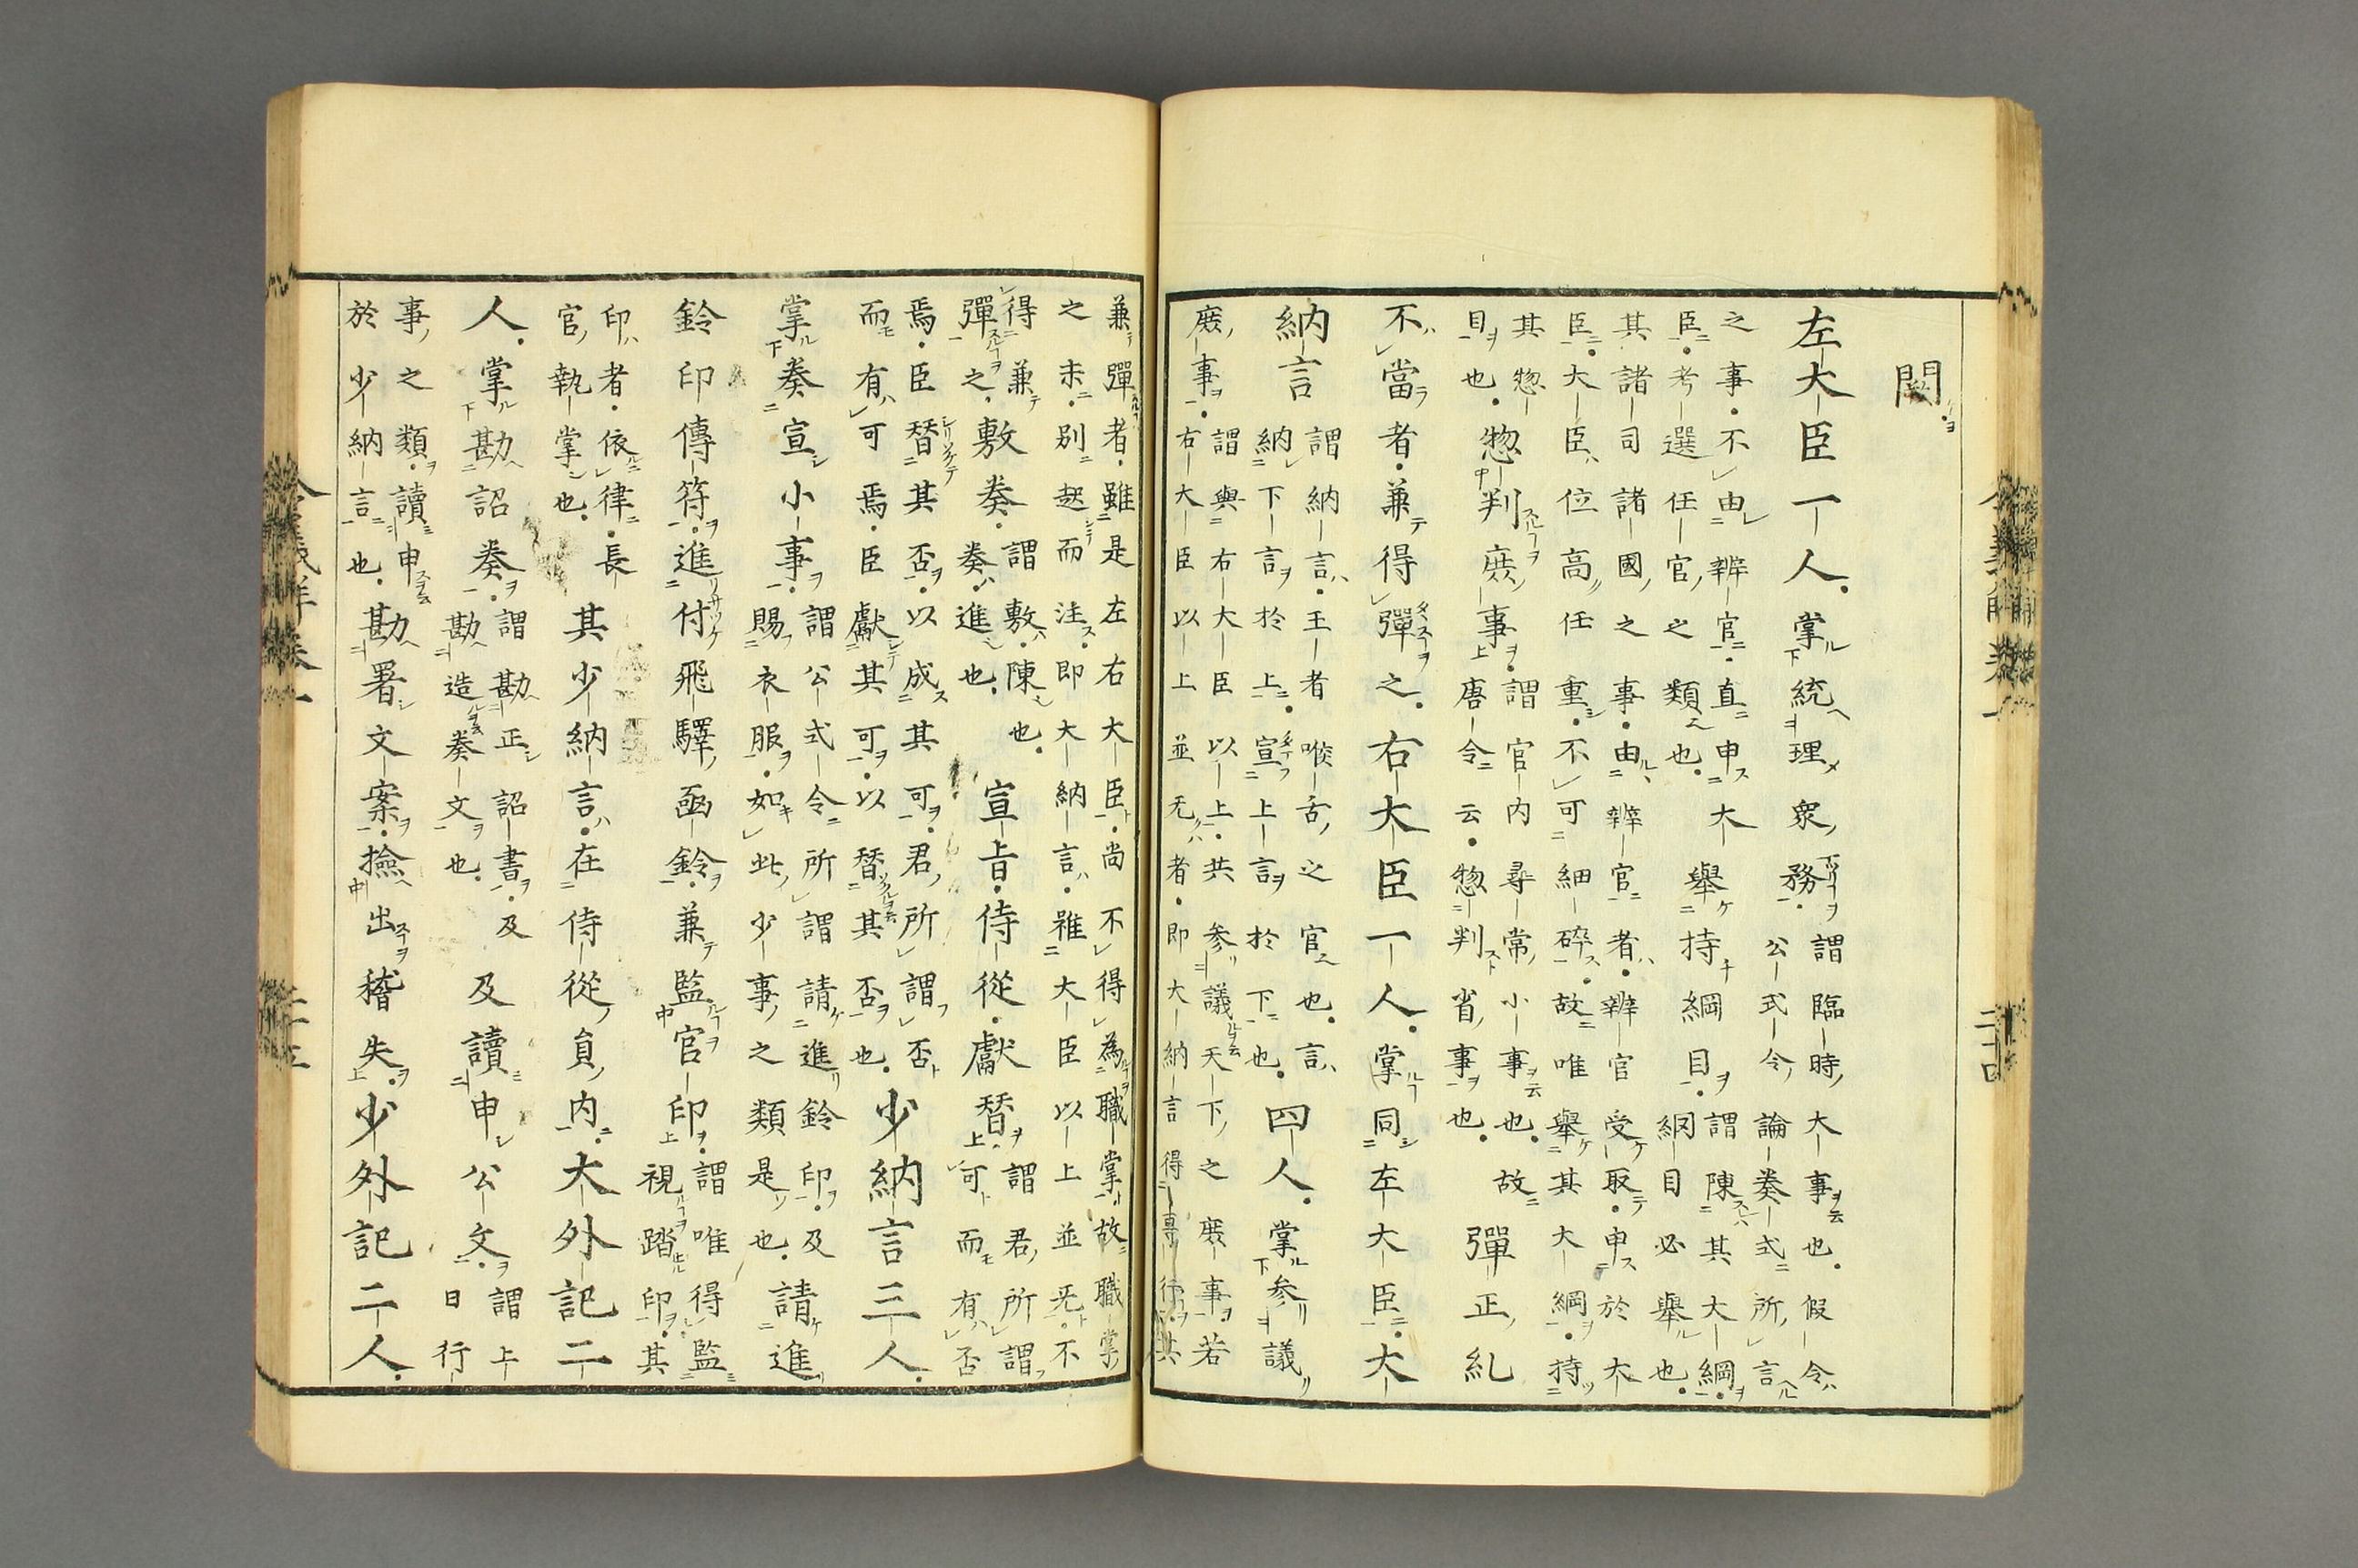 闕
左大臣一人。掌統理衆務。謂臨時大事也。假令
公式令論奏式所言
之事。不由辨官。直申大
臣。考選任官之類也。舉持綱目。謂陳其大綱。
網目必舉也。
其諸司諸國之事。由辨官者。辨官受取。申於大
臣。大臣位高任重。不可細碎。故唯舉其大綱。持
其惣
目也。惣判庶事。謂官内尋常小事也。故
唐令云。惣判省事也。彈正糺
不當者。兼得彈之。右大臣一人。掌同左大臣。大
納言謂納言。王者喉舌之官也。言
納下言於上。宣上言於下也。四人。掌參議
庶事。謂與右大臣以上。共參議天下之庶事。若
右大臣以上並无者。即大納言得專行。其
兼彈者。雖是左右大臣。尚不得為職掌。故職掌
之末。別起而注。即大納言。雖大臣以上並无。不
得兼
彈之。敷奏。謂敷。陳也。
奏。進也。宣旨。侍從。獻替。謂君所謂
可而有否
焉。臣替其否。以成其可。君所謂否
而有可焉。臣獻其可。以替其否也。少納言三人。
掌奏宣小事。謂公式令所謂請進鈴印。及
賜衣服。如此少事之類是也。請進
鈴印傳符。進付飛驛函鈴。兼監官印。謂唯得監
視踏印。其
印者。依律。長
官執掌也。其少納言。在侍從員内。大外記二
人。掌勘詔奏。謂勘正詔書。及
勘造奏文也。及讀申公文。謂上
日行
事之類。讀申
於少納言也。勘署文案。撿出稽失。少外記二人。